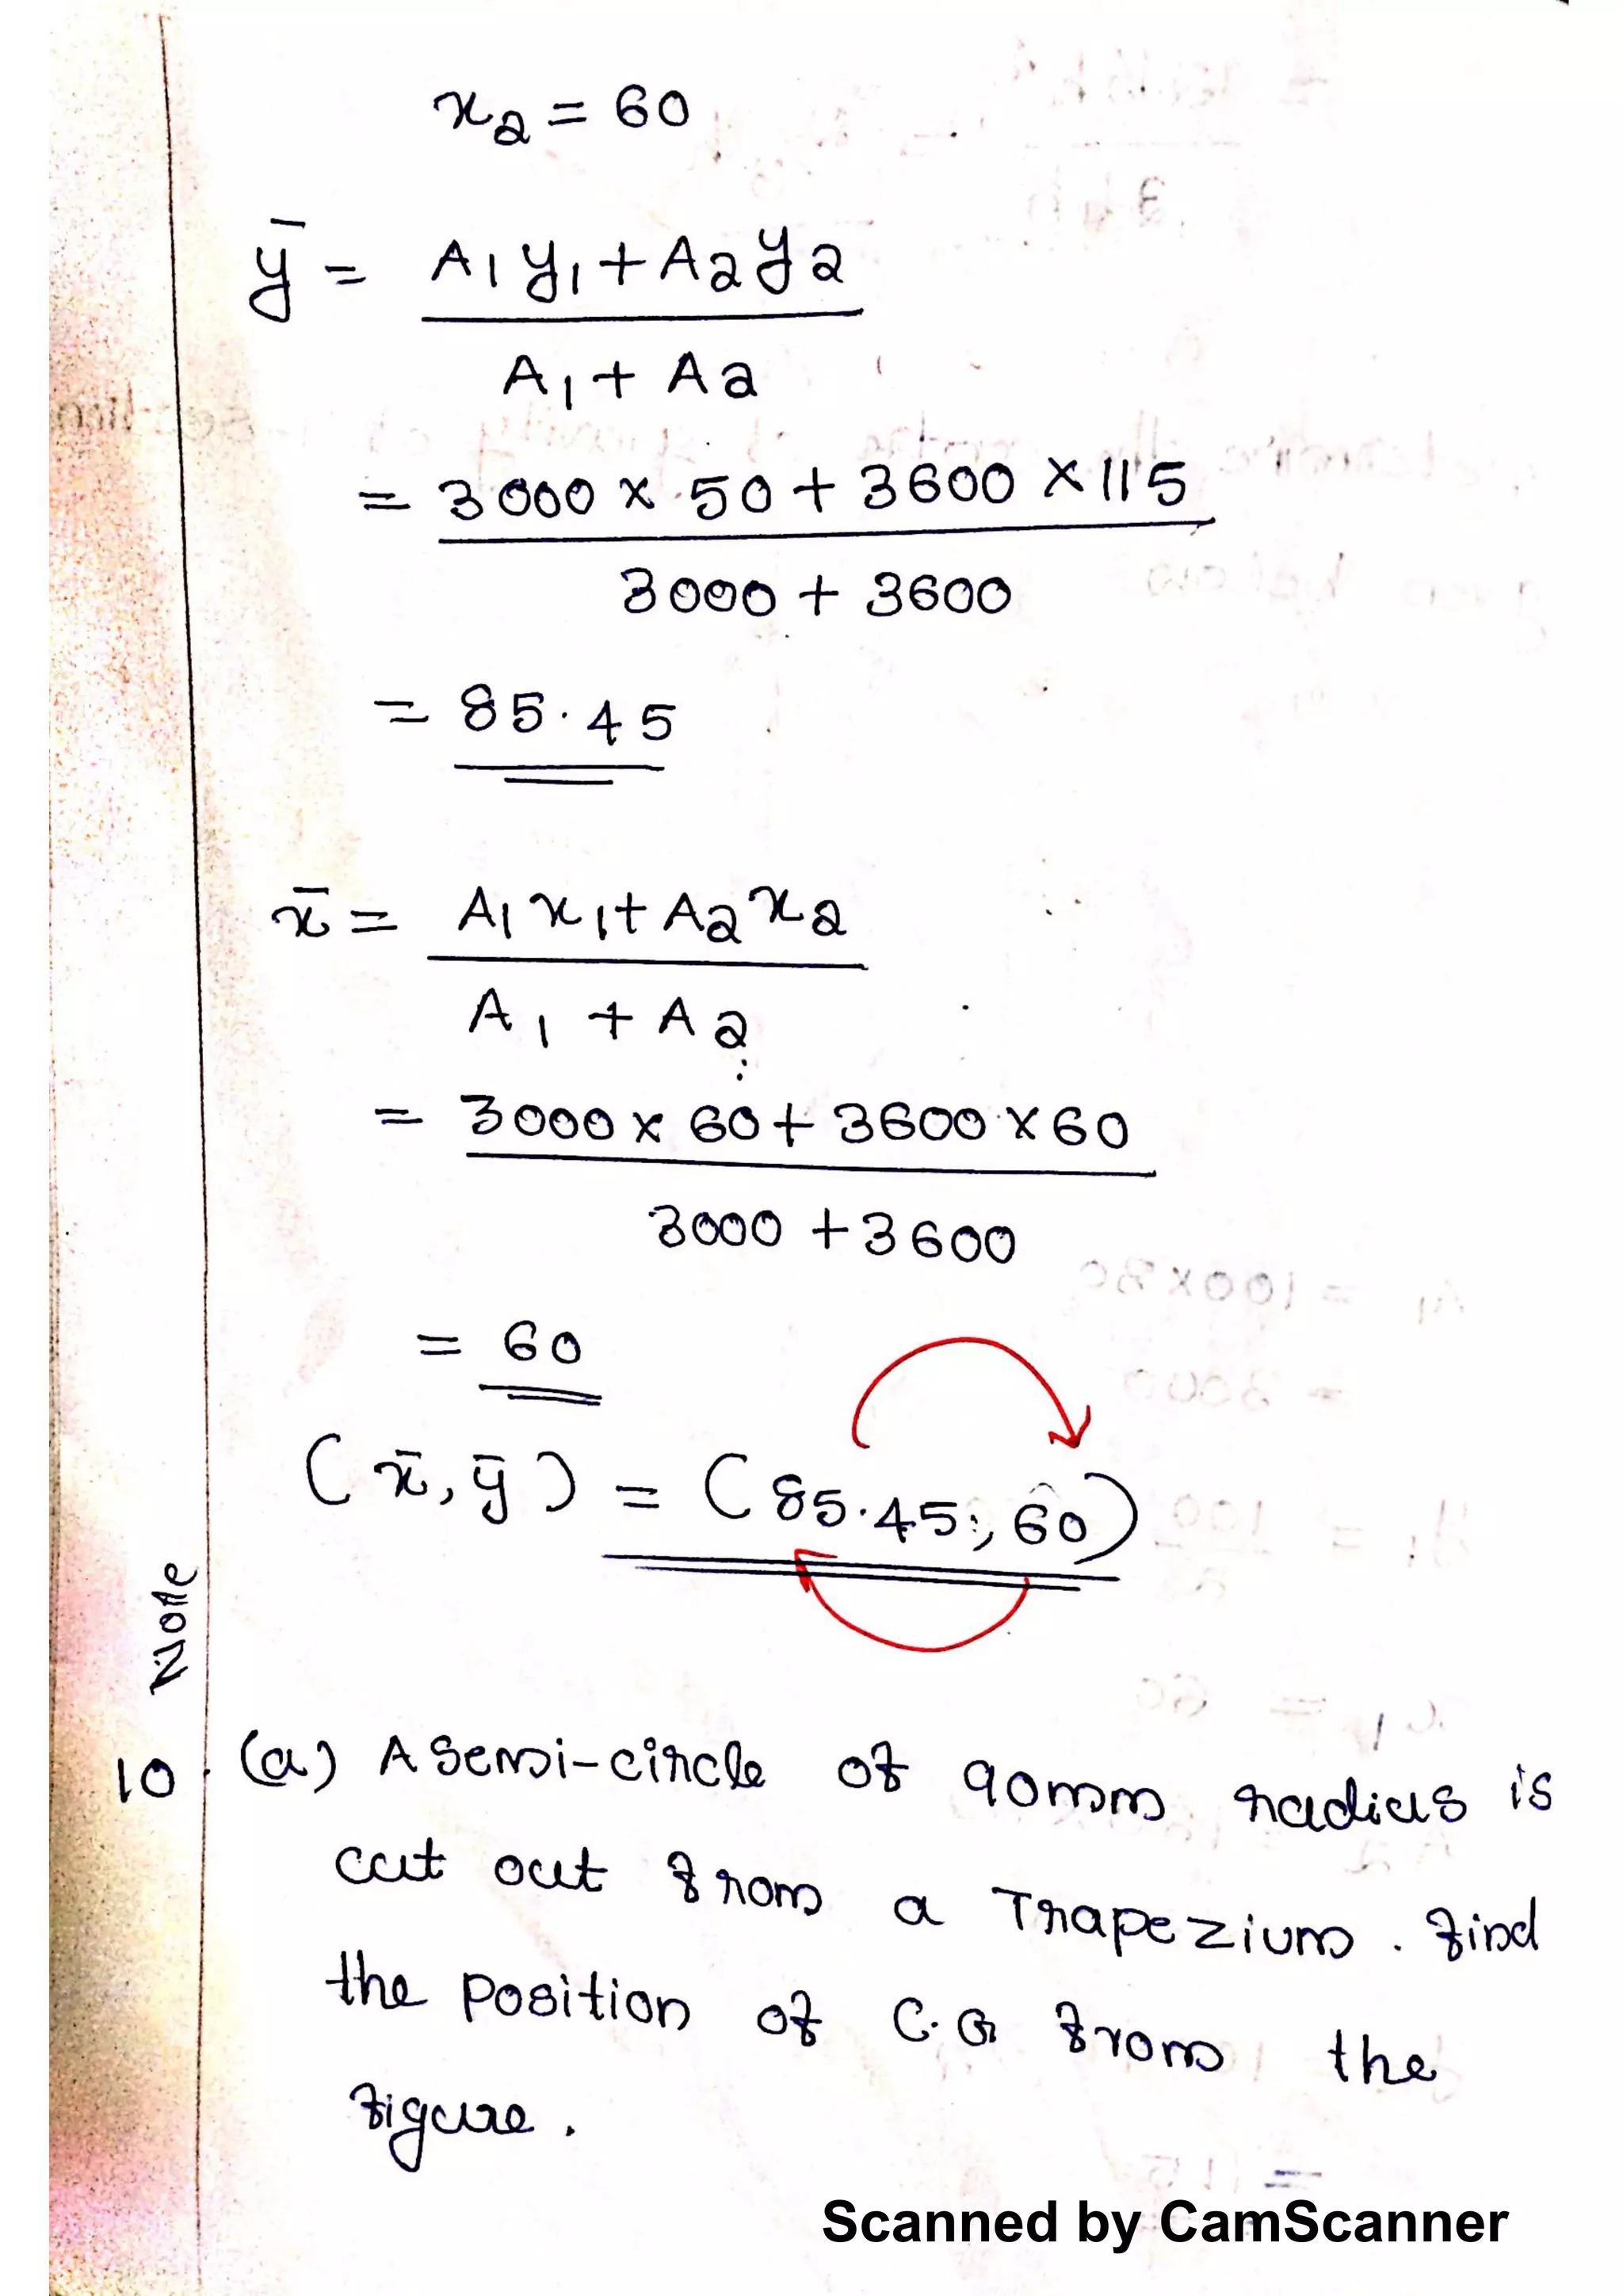 x₂ = 60
ȳ = A₁y₁ + A₂y₂
A₁ + A₂
= 3000 × 50 + 3600 × 115
3000 + 3600
= 85.45
x̄ = A₁x₁ + A₂x₂
A₁ + A₂
= 3000 × 60 + 3600 × 60
3000 + 3600
= 60
(x̄, ȳ) = (85.45, 60)
Note
10. (a) A Semi-circle of 90mm radius is
cut out from a Trapezium. find
the position of C.G from the
figure.
Scanned by CamScanner